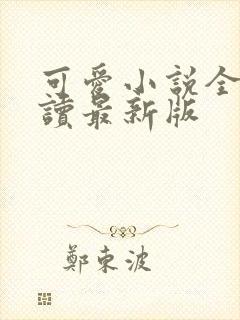 可愛小説全
讀最新版
鄭東波